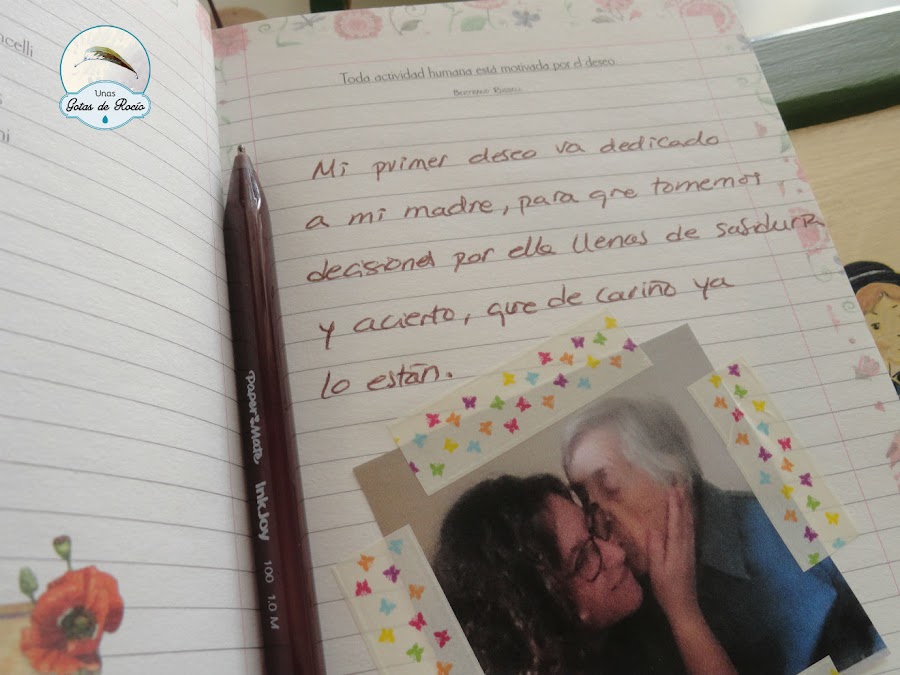 Unas
Gotas de Rocío
Toda actividad humana está motivada por el deseo
Bertrand Russell
Mi primer deseo va dedicado
a mi madre, para que tomemos
decisiones por ella llenas de sabiduría
y acierto, que de cariño ya
lo están.
PaperMate InkJoy 100 1.0 M